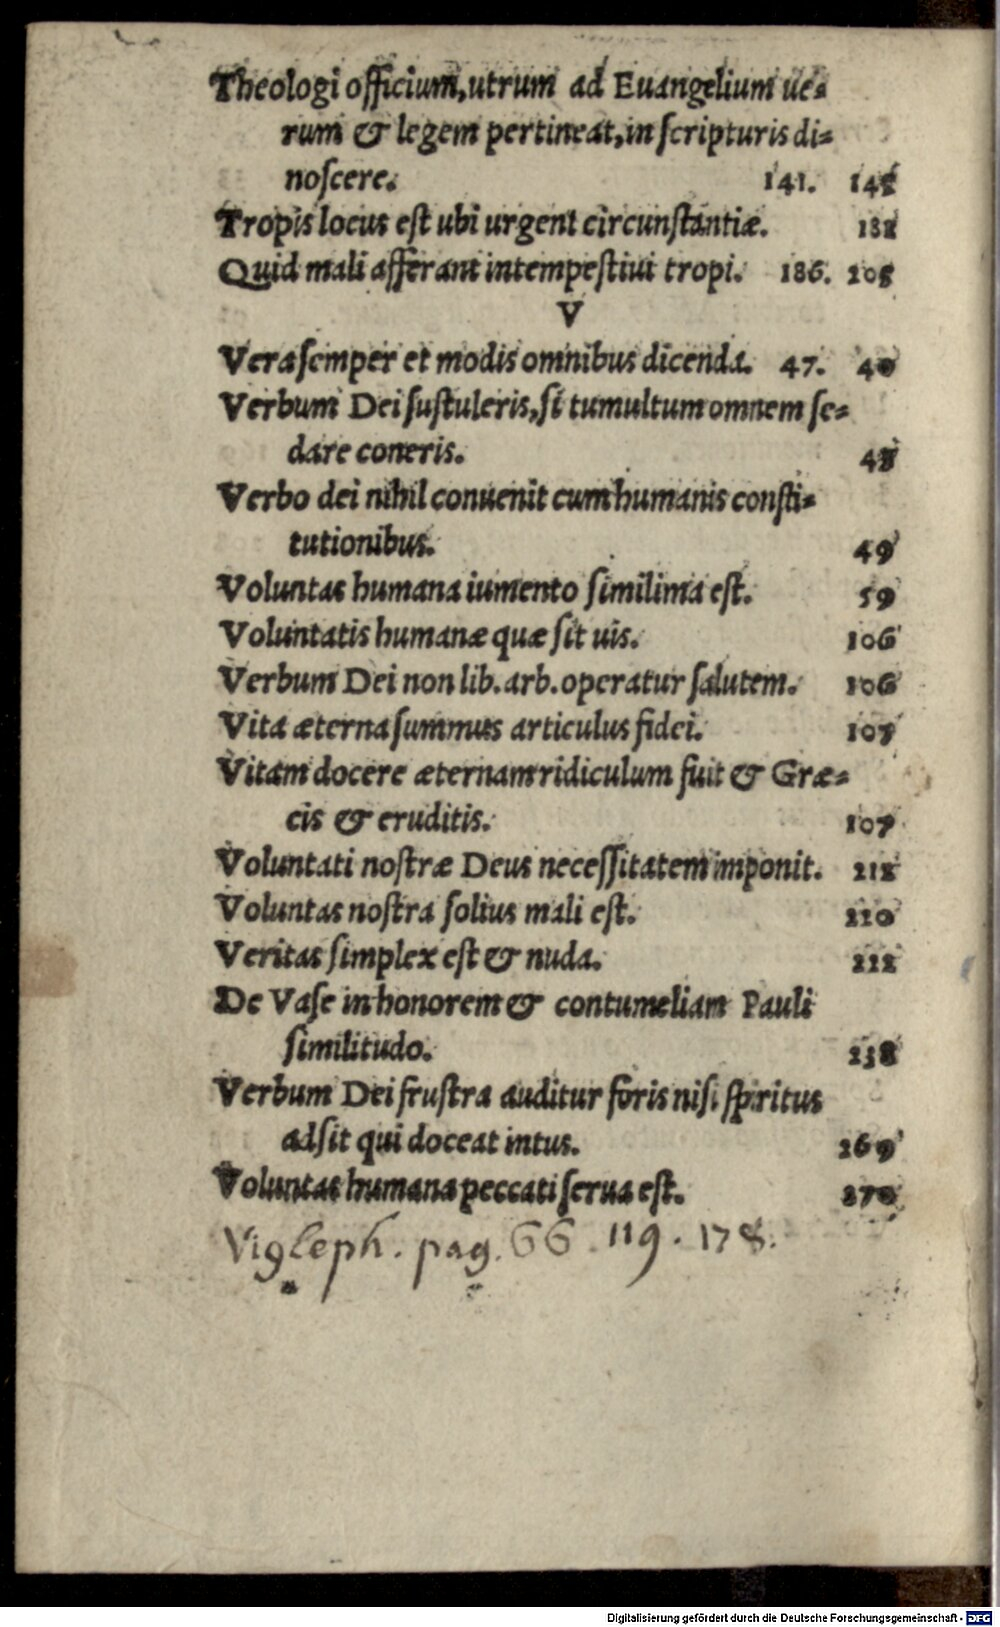 Theologi officium, utrum ad Euangelium ue-
rum & legem pertineat, in scripturis di-
noscere. 141. 145
Tropis locus est ubi urgent circunstantiæ. 182
Quid mali afferant intempestiui tropi. 186. 205
V
Vera semper et modis omnibus dicenda. 47. 40
Verbum Dei sustuleris, si tumultum omnem se-
dare coneris. 48
Verbo dei nihil conuenit cum humanis consti-
tutionibus. 49
Voluntas humana iumento similima est. 59
Voluntatis humanæ quæ sit uis. 106
Verbum Dei non lib. arb. operatur salutem. 106
Vita æterna summus articulus fidei. 107
Vitam docere æternam ridiculum fuit & Græ-
cis & eruditis. 107
Voluntati nostræ Deus necessitatem imponit. 212
Voluntas nostra solius mali est. 220
Veritas simplex est & nuda. 222
De Vase in honorem & contumeliam Pauli
similitudo. 238
Verbum Dei frustra auditur foris nisi spiritus
adsit qui doceat intus. 269
Voluntas humana peccati serua est. 270
Vigleph. pag. 66. 119. 178.
Digitalisierung gefördert durch die Deutsche Forschungsgemeinschaft - DFG